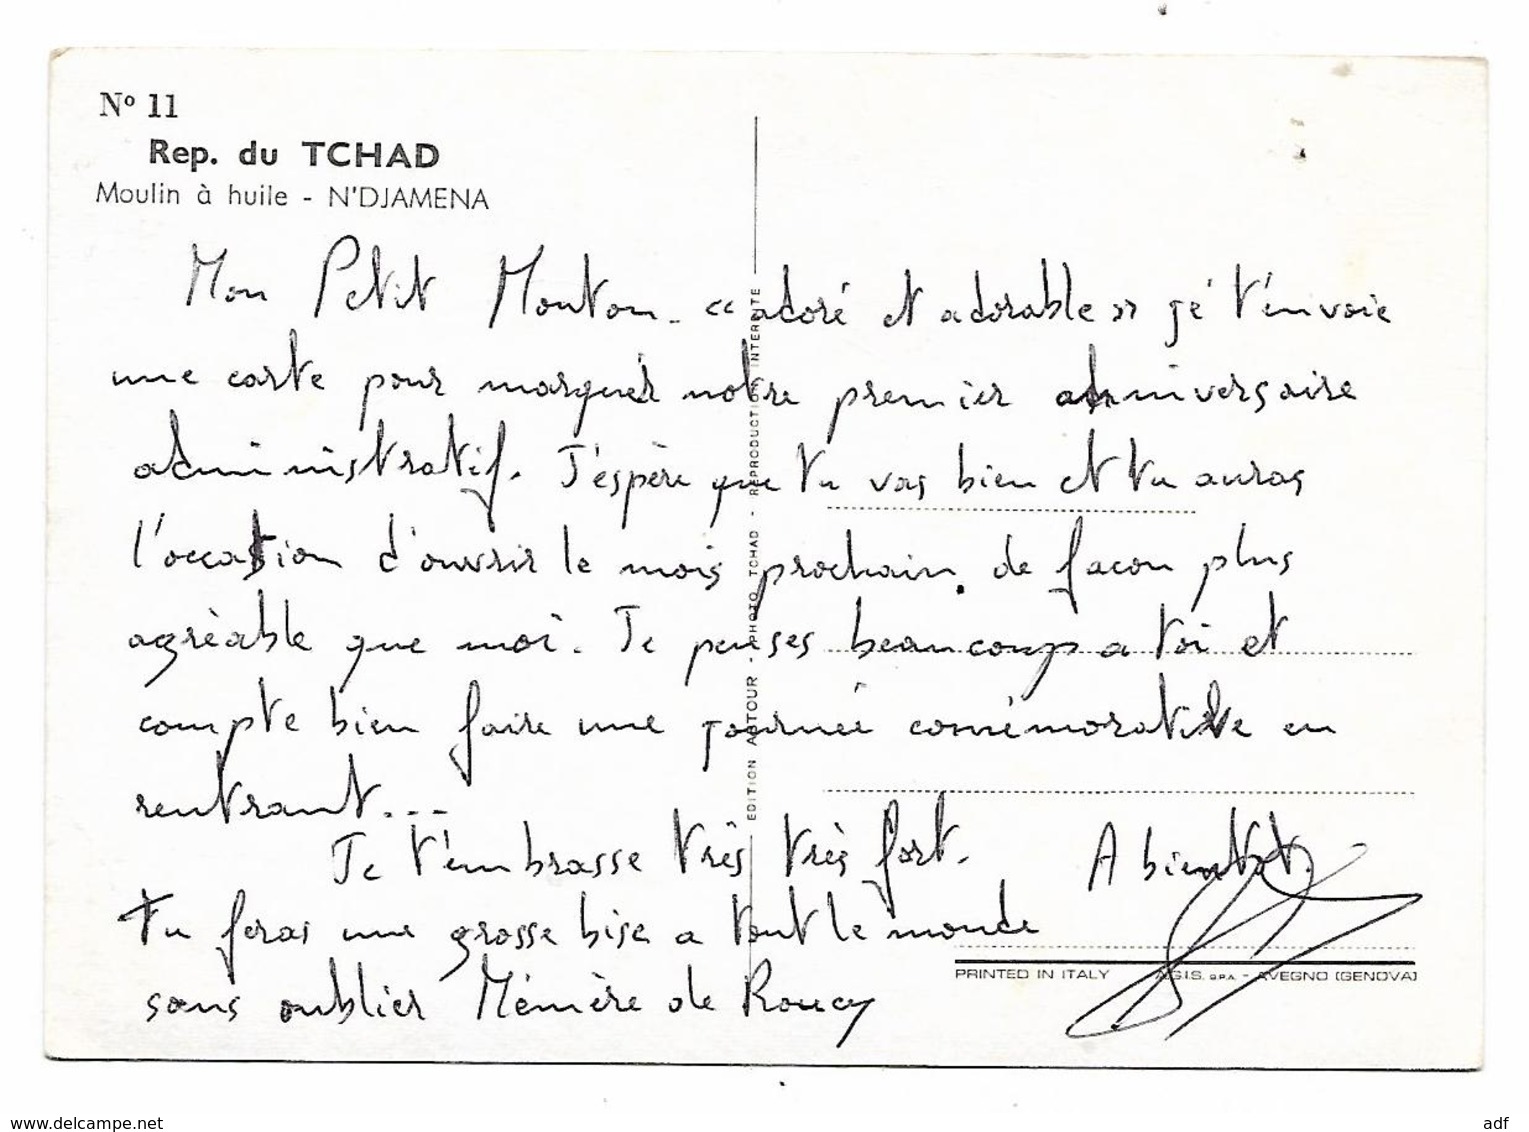 N° 11
Rep. du TCHAD
Moulin à huile - N'DJAMENA
Mon Petit Mouton. "adoré et adorable" jé t'envoie
une carte pour marquer notre premier anniversaire
administratif. J'espère que tu vas bien et tu auras
l'occasion d'ouvrir le mois prochain. de facon plus
agréable que moi. Je penses beaucoup a toi et
compte bien faire une journée comémorative en
rentrant...
Je t'embrasse très très fort. A bientot.
Tu feras une grosse bise a tout le monde
sans oublier Mémère de Roucy
EDITION ARTOUR - PHOTO TCHAD - REPRODUCTION INTERDITE
PRINTED IN ITALY A.G.I.S. S.P.A. - AVEGNO (GENOVA)
www.delcampe.net
adf